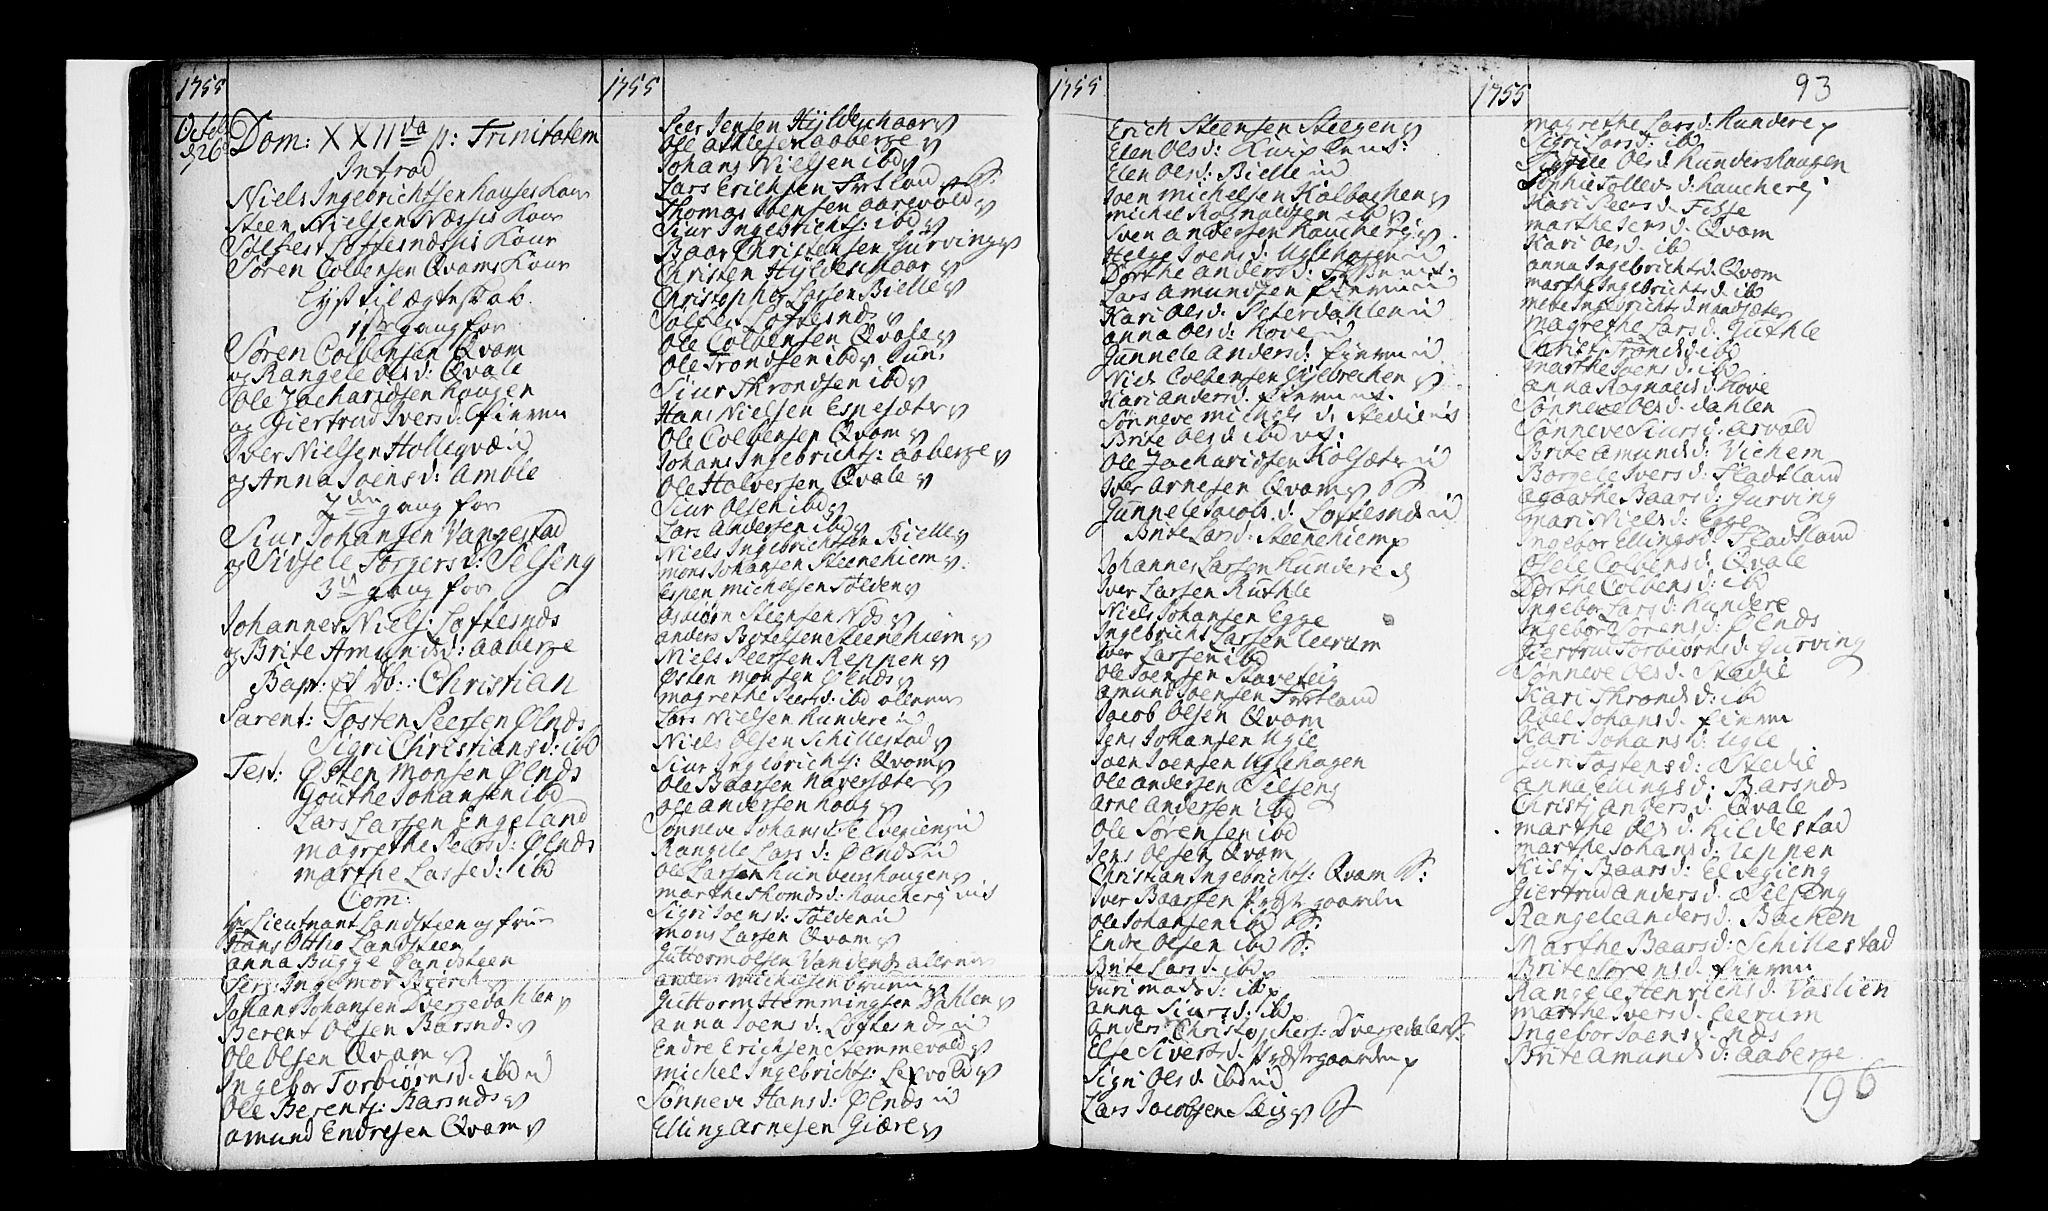 1755
Octobr
d. 26
Dom: XXIIva p: Trinitatem
Introd
Niels Ingebrichtsen Houfes Kone
Steen Nielsen Næsses Kone
Lottesnæssis Kone
Søren Colbensen Qvams Kone
Lyst til ægteskab.
1ste gang for
Søren Colbensen Qvam
og Rangele Olsd: Qvale
Ole Zachariasen Hougen
og Giertrud Ivers d: Finven
Iver Nielsen
og Anna Joens d: Amble
2den gang for
Siur Johansen Vangestad
og Sidsele Torgers d: Selseng
3die gang for
Johannes Niels: Loftesnæs
og Brite Amunds d: Aaberge
Bapt: Christian
Parent: Tosten Peersen Ølnæs
Sigri Christians d: ibd
Test: Østen Monsen Ølnæs
Gouthe Johansen ibd
Lars Larsen Engeland
Magrethe Peers d: Ølnæs
Marthe Lasse d: ibd
Com:
Hr Lieutnant Landsteen og frue
Hans Ottho Landsteen
Anna Bugge Landsteen
Serj: Ingemor Bierch
Johans Johansen Dvergedahlen
Berent Olsen Barsnæs
Ole Olsen Qvam
Ingebor Torbiørns d. ibd
Ole Berents: Barsnæs
Amund Endresen Qvam
1755
Peer Jensen Hyldeschaar
Ole Aaberge
Johans Nielsen ibd
Lars Erichsen
Thomas Joensen Aarevold
Siur Ingebrichts: ibd
Baar Christensen Gurving
Christen Hyldeschaar
Christopher Larsen Bielle
Loftesnæs
Ole Colbensen Qvale
Ole Trondsen ibd
Siur Throndsen ibd
Hans Nielsen Espesæter
Ole Colbensen Qvam
Johans Ingebrichts: Aaberge
Ole Halversen Qvale
Siur Olsen ibd
Lars Andersen ibd
Niels Ingebrichtsen Bielle
Mons Johansen Steenehiem
Espen Michelsen Tølden
Asbiørn Steensen Næs
Anders Botelsen Steenehiem
Niels Peersen Reppen
Østen Monsen Ølnæs
Magrethe Peers d: ibd
Lars Nielsen Hundere
Niels Olsen Schillestad
Siur Ingebrichts: Qvam
Ole Baarsen Haversæter
Ole Andersen Houg
Sønneve Johans d: Elvegieng
Rangele Lars d: Ølnæs
Ole Larsen Hundershougen
Marthe Thronds d: Kaucherg
Sigri Joens d: Tølden
Mons Larsen Qvam
Guttorm Olsen
Anders Michelsen
Guttorm Hemmingsen Dahlen
Anna Joens d: Loftesnæs
Endre Erichsen Stemmevold
Michel Ingebrichts: Lexvold
Sønneve Hans d: Ølnæs
Elling Arnesen Giære
1755
Erich Steensen Steegen
Elen Ols d:
Elen Ols d: Bielle
Joen Michelsen Kalbachen
Michel Rognaldsen ibd
Sven Andersen Kaucherg
Helge Ivers d: Uglehagen
Dorthe Anders d:
Lars Amundsen Finven
Kari Ols d: Seterdahlen
Anna Ols d: Hove
Gunnele Anders d: Finven
Niels Colbensen
Kari Anders d: Finven
Sønneve Michels d: Stedie
Brite Ols d ibd
Ole Zachariasen Kolsæter
Iver Arnesen Qvam
Gunnele Jacobs d: Loftesnæs
Brite Lars d: Steenehiem
Johannes Larsen Hundere
Iver Larsen Ruthle
Niels Johansen Egge
Ingebricht Larsen Leerum
Iver Larsen ibd
Ole Joensen Stavetieg
Amund Joensen
Jacob Olsen Qvam
Jens Johansen Ugle
Joen Joensen Uglehagen
Ole Andersen Selseng
Arne Andersen ibd
Ole Sørensen ibd
Jens Olsen Qvam
Christian Ingebrichts: Qvam
Iver Baarsen Præstgaarden
Ole Johansen ibd
Endre Olsen ibd
Brite Lars d. ibd
Guri Mads d: ibd
Anna Siurs d: ibd
Anders Christophers: Dvergedalen
Else Siverts d. Præstgaarden
Sigri Ols d: ibd
Lars Jacobsen
1755
93
Magrethe Lars d: Hundere
Sigri Lars d: ibd
Sidsele Ols d Hundershougen
Sophie Tolleds d: Kaucherg
Kari Peers d. Fosse
Marthe Jens d: Qvam
Kari Ols d. ibd
Anna Ingebrichts d. Qvam
Marthe Ingebrichts d. ibd
Mette Ingebrichts d.
Magrethe Lars d. Guthle
Christj Tronds d. ibd
Marthe Joens d: ibd
Anna Rognaels d. Hove
Sønneve Ols d. Dahlen
Sønneve Siurs d: Arvold
Brite Amunds d: Vichem
Borgele Ivers d: Stadtland
Agathe Baars d: Gurving
Mari Niels d: Egge
Ingebor Ellings d: Stadtland
Osele Colbens d: Qvale
Dorthe Colbens d: ibd
Ingebor Lars d: Hundere
Ingebor Sørens d: Ølnæs
Giertrud Torbiørns d: Gurving
Sønneve Ols d. Stedie
Kari Thronds d: ibd
Adel Johans d. Finven
Kari Johans d: Ugle
Guri Tostens d: Stedie
Anna Ellings d: Barsnæs
Christj Anders d. Qvale
Marthe Ols d. Kildestad
Marthe Johans d: Reppen
Kistj Baars d: Elvegieng
Giertrud Anders d. Selseng
Rangele Anders d: Backen
Marthe Baars d: Schillestad
Brite Sørens d. Finven
Rangele Henrichs d. Vaslien
Marthe Ivers d. Leerum
Ingebor Joens d. Næs
Brite Amunds d: Aaberge
196